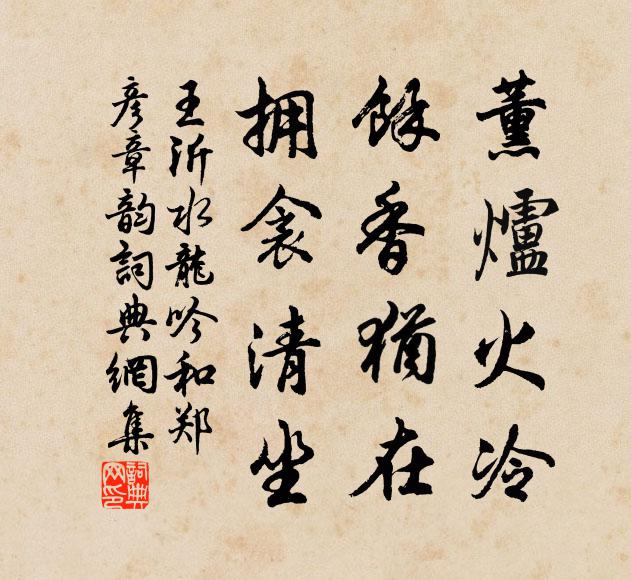 薰爐火冷
餘香猶在
拥衾清坐
王沂水龍吟和郑
彦章韵詞典網集
詞典网印